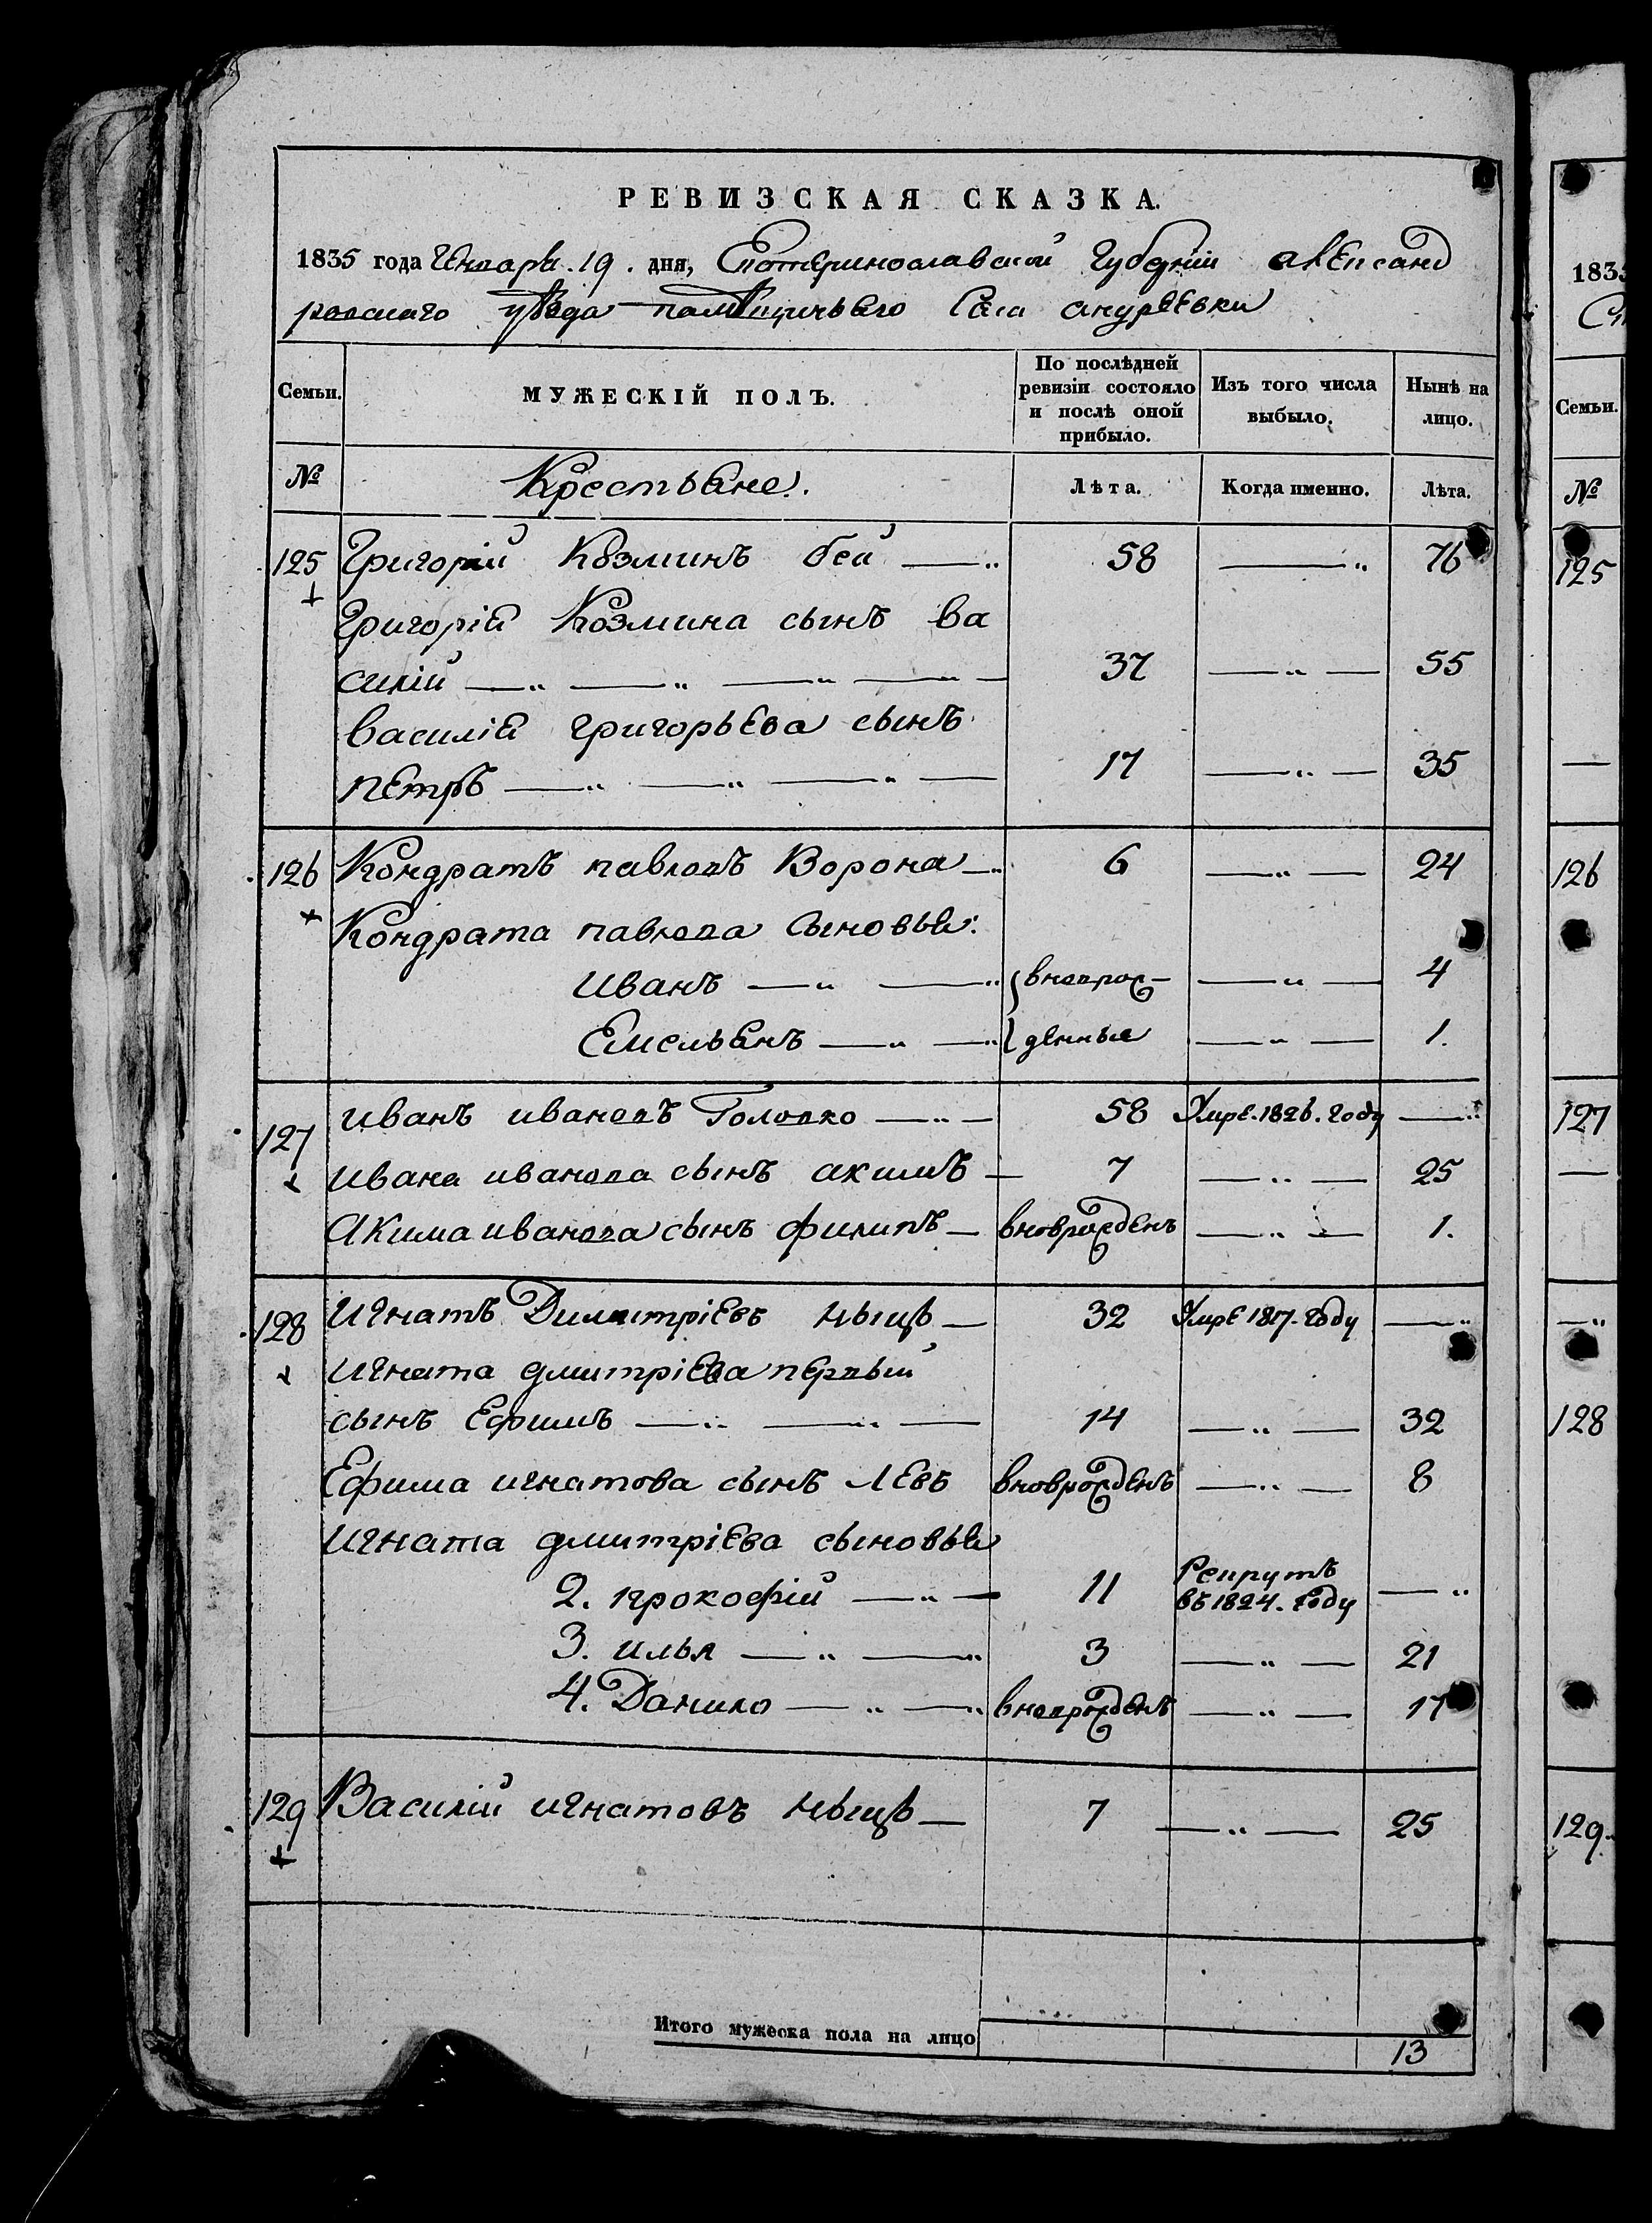 РЕВИЗСКАЯ СКАЗКА.
1835 года Генваря. 19. дня, Екатеринославской Губернiи Александ
ровскаго уѣзда помѣщичьяго Села андреевки
Семьи.
МУЖЕСКІЙ ПОЛЪ.
По послѣдней ревизіи состояло и послѣ оной прибыло.
Изъ того числа выбыло.
Нынѣ на лицо.
№ Крестьяне. Лѣта. Когда именно. Лѣта.
125 Григорiй Козминъ бей —„ 58 —„ 76
Григорiя Козмина сынъ ва
силiй —„ —„ —„ —„ — 37 —„— 55
василiя григорьева сынъ
петръ —„ —„ —„ — 17 —„— 35
126 Кондратъ павловъ Ворона —„ 6 —„— 24
Кондрата павлова сыновья:
иванъ —„ —„ вновро— —„— 4
Емельянъ —„ —„ жденные —„— 1.
127 иванъ ивановъ Головко —„— 58 Умре. 1826. году —„
ивана иванова сынъ акимъ — 7 —„— 25
Акима иванова сынъ филипъ — вноврожденъ —„— 1.
128 игнатъ Димитрiевъ — 32 Умре 1817. году —„
игната дмитрiева первый
сынъ Ефимъ —„ —„ — 14 —„— 32
Ефима игнатова сынъ левъ вноврожденъ —„— 8
игната дмитрiева сыновья
2. прокофiй —„— 11 Рекрутъ
въ 1824. году —„
3. илья —„ —„ 3 —„— 21
4. Данило —„ —„ вноврожденъ —„— 17
129 Василiй игнатовъ — 7 —„— 25
Итого мужеска пола на лицо 13
1835
Семьи.
№
125
126
127
128
129.